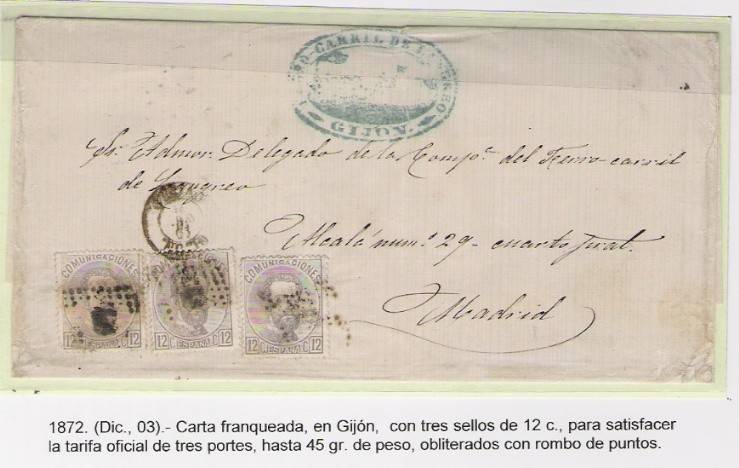 CARRIL DE LANGREO
GIJON.
Sr. Admor. Delegado de la Compª del Ferro-carril
de Langreo
Alcalá num.º 29- cuarto pral.
Madrid
COMUNICACIONES COMUNICACIONES COMUNICACIONES
12 ESPAÑA 12 C 12 ESPAÑA 12 C 12 C ESPAÑA 12 C
1872. (Dic., 03).- Carta franqueada, en Gijón, con tres sellos de 12 c., para satisfacer
la tarifa oficial de tres portes, hasta 45 gr. de peso, obliterados con rombo de puntos.